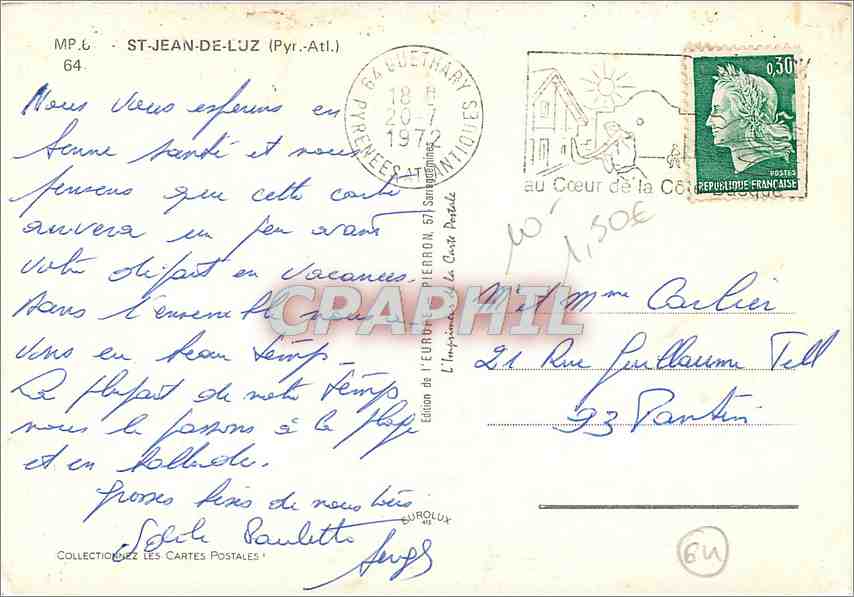 MP.6 - ST-JEAN-DE-LUZ (Pyr.-Atl.)
64
Nous vous espérons en
bonne santé et nous
pensons que cette carte
arrivera un peu avant
votre départ en vacances.
dans l'ensemble nous a
vons eu beau temps
La plupart de notre temps
nous le passons à la plage
et en ballade.
Grosses bises de nous trois
Odile Paulette
Serge
COLLECTIONNEZ LES CARTES POSTALES
64 GUETHARY
18 H
20-7
1972
PYRENEES ATLANTIQUES
au Cœur de la Côte Basque
0,30
POSTES
REPUBLIQUE FRANÇAISE
10-
1,50€
Edition de l'EUROPE - PIERRON, 57) Sarreguemines
L'Imprimeur de la Carte Postale
CPAPHIL
Mr et Mme Carlier
21 Rue Guillaume Tell
93 Pantin
EUROLUX
64